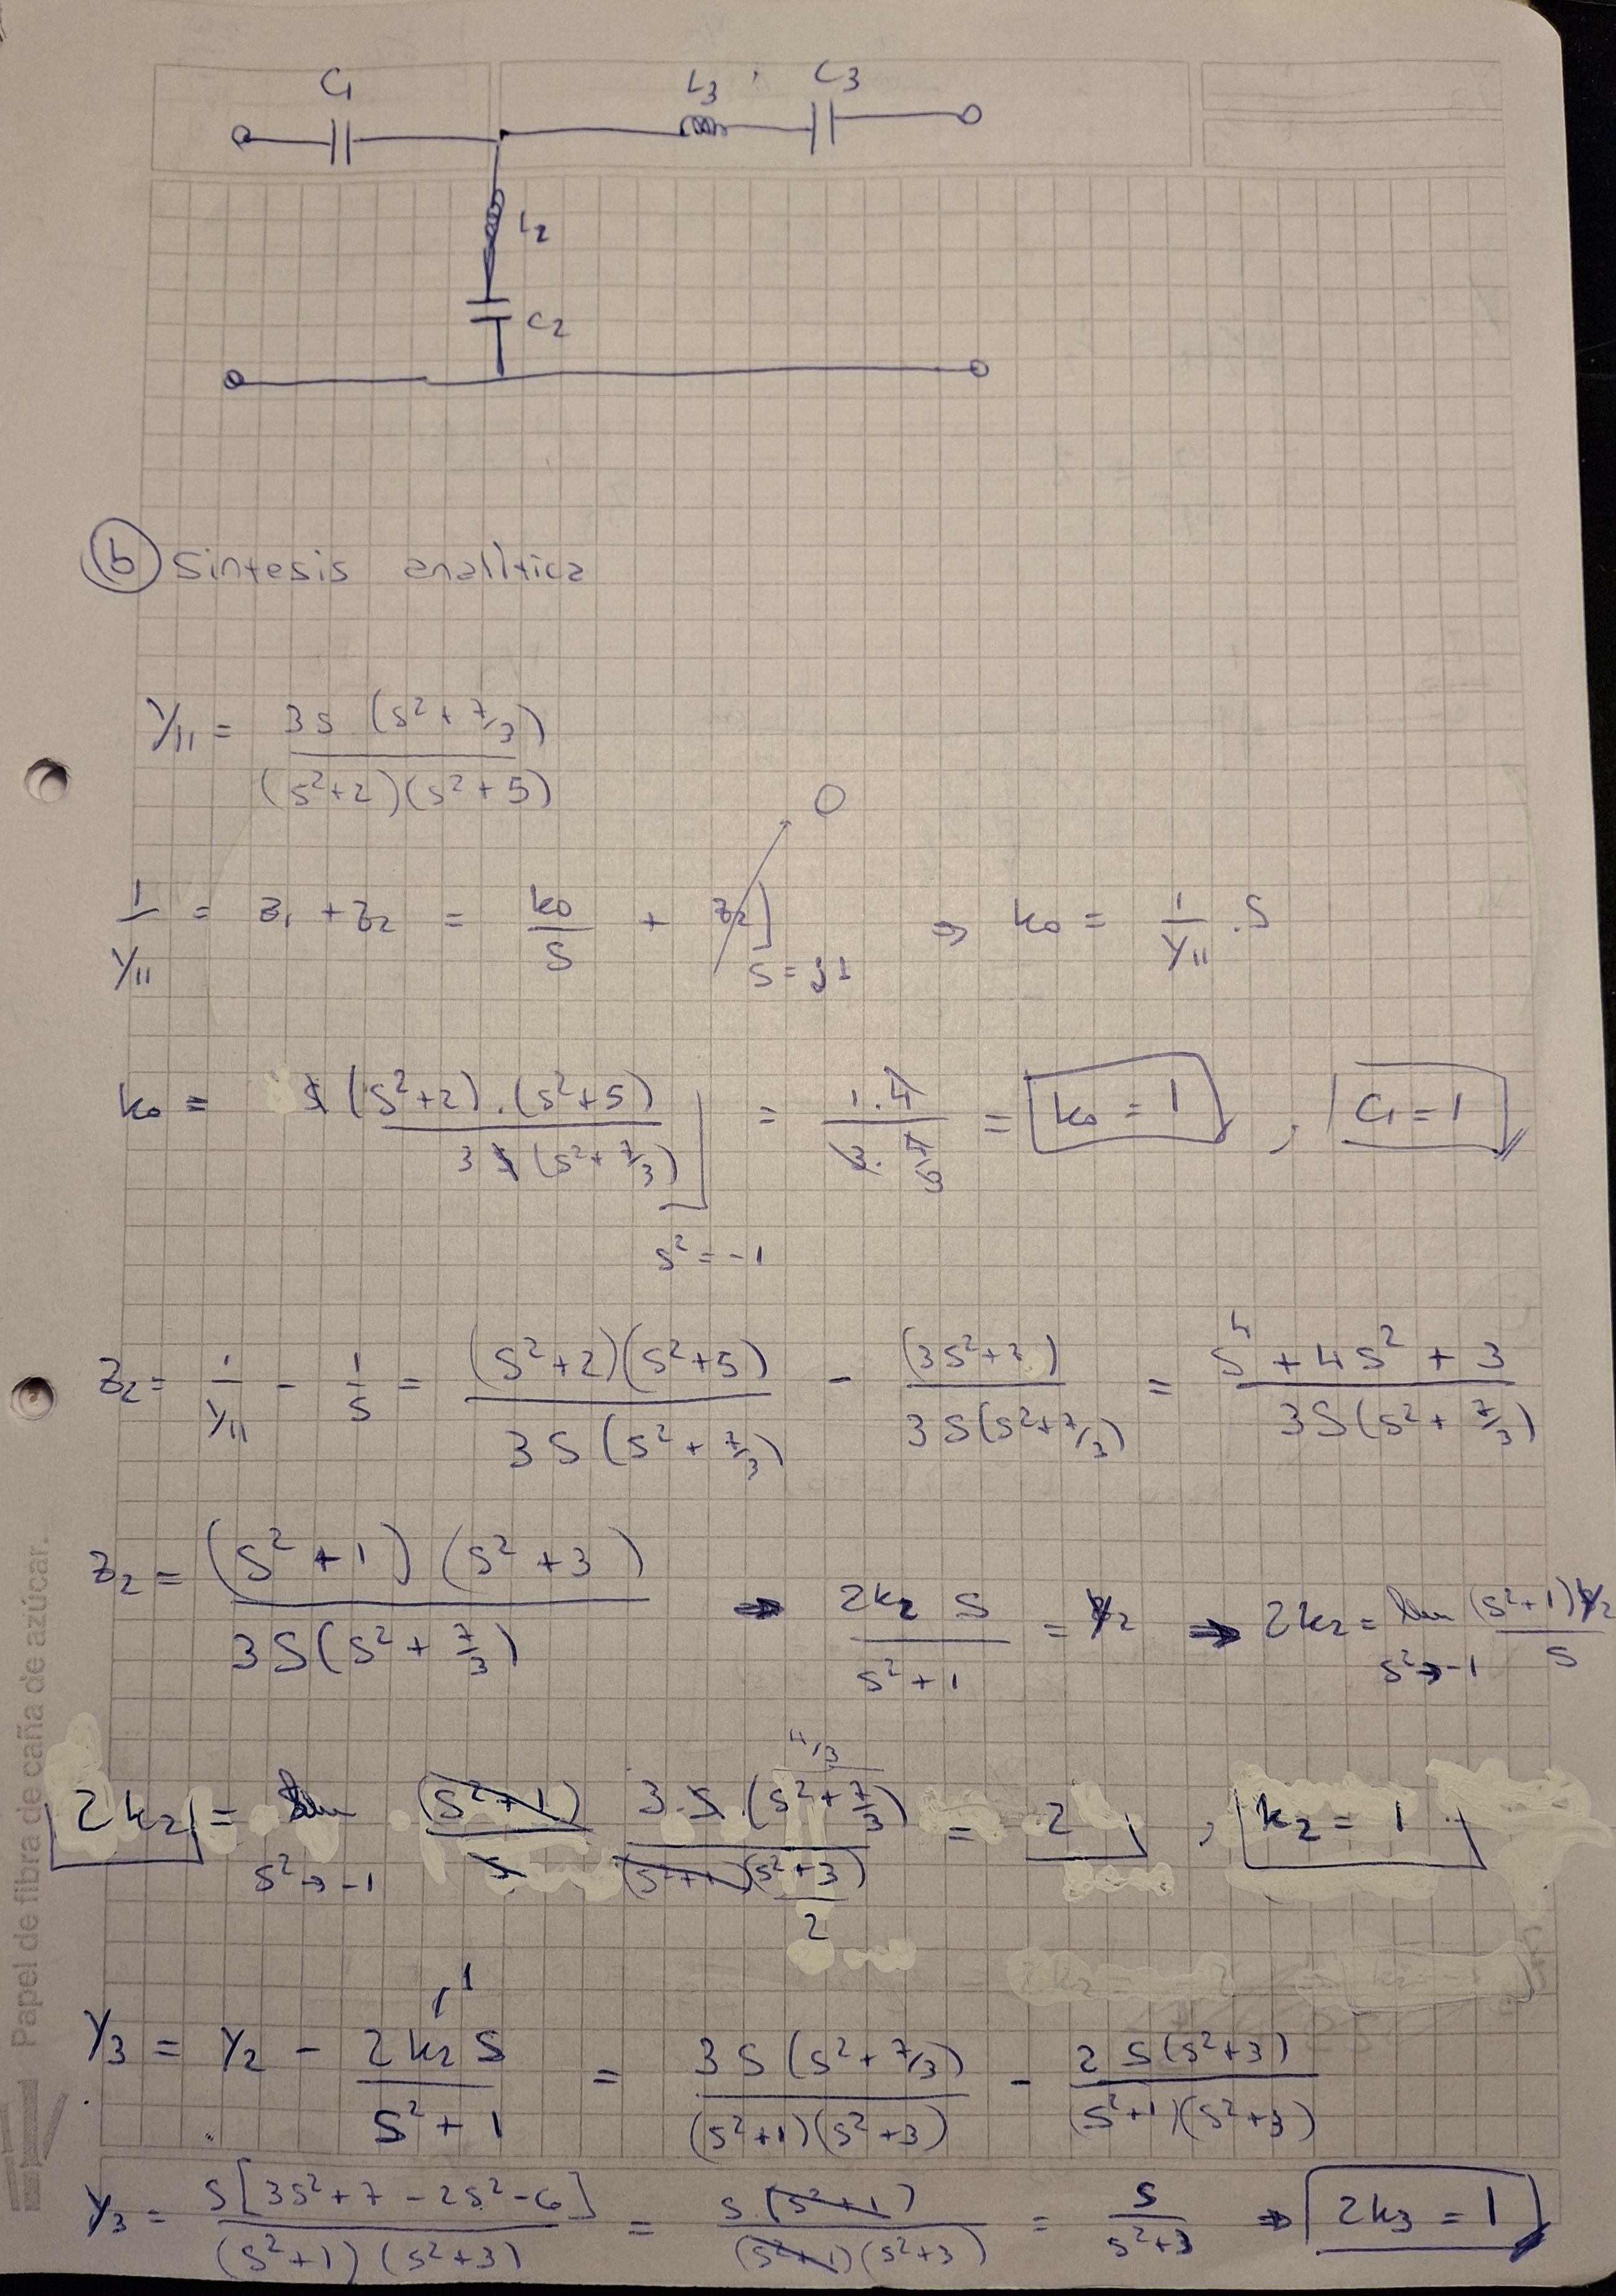 C1 L3 C3
L2
C2
(b) Sintesis analitica
Y11 = 3s (s² + 7/3) / (s²+2)(s²+5)
0
1/Y11 = Z1 + Z2 = k0/s + Z2] s=j1 ⇒ k0 = 1/Y11 . s
k0 = s (s²+2).(s²+5) / 3 s (s² + 7/3) ] s² = -1 = 1.4 / 3. 4/3 = k0 = 1 , C1 = 1
Z2 = 1/Y11 - 1/s = (s²+2)(s²+5) / 3s (s² + 7/3) - (3s²+7) / 3s(s²+7/3) = s⁴ + 4s² + 3 / 3s(s² + 7/3)
Z2 = (s² + 1) (s² + 3) / 3s(s² + 7/3) ⇒ 2k2 s / s² + 1 = Y2 ⇒ 2k2 = lim s²→-1 (s²+1) Y2 / s
2k2 = lim s²→-1 (s²+1) / s 3.s.(s² + 7/3) / (s²+1)(s²+3) 4/3 2 = 2 , k2 = 1
Y3 = Y2 - 2k2 s / s² + 1 1 = 3s (s² + 7/3) / (s²+1)(s²+3) - 2s(s²+3) / (s²+1)(s²+3)
Y3 = s[3s²+7 - 2s² - 6] / (s²+1)(s²+3) = s.(s²+1) / (s²+1)(s²+3) = s / s²+3 ⇒ 2k3 = 1
Papel de fibra de caña de azúcar.